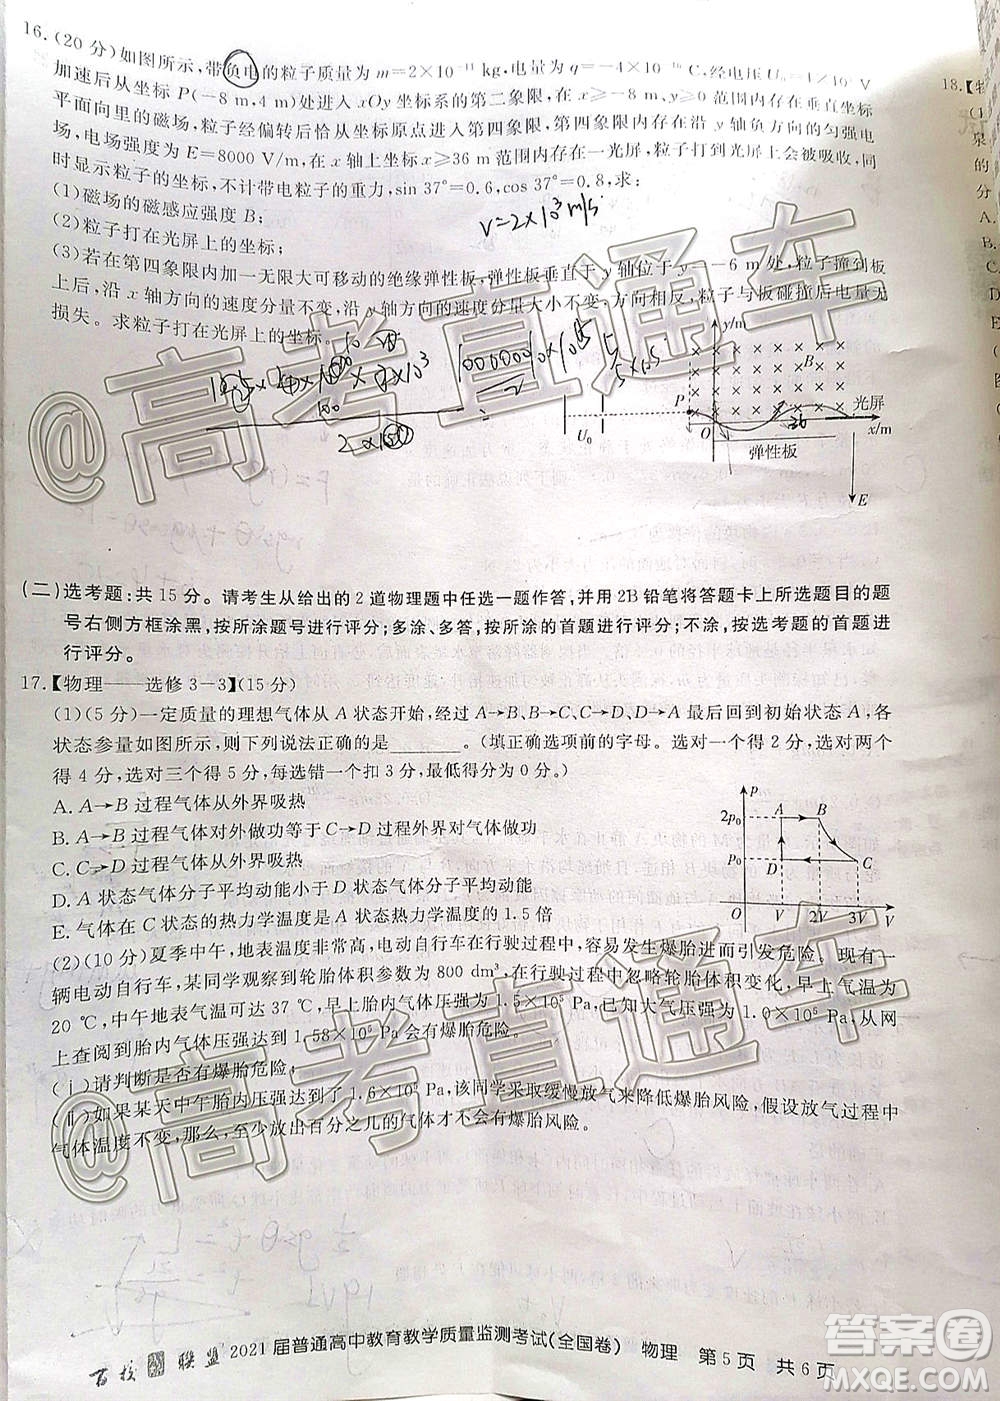 16.(20 分)如图所示,带负电的粒子质量为 m=2×10⁻¹¹ kg,电量为 q=-4×10⁻¹⁰ C,经电压 U₀= V
加速后从坐标 P(-8 m,4 m)处进入 xOy 坐标系的第二象限,在 x≥-8 m 范围内存在垂直坐标
平面向里的磁场,粒子经偏转后恰从坐标原点进入第四象限,在第四象限内存在沿 y 轴负方向的匀强电
场,电场强度为 E=8000 V/m,在 x 轴上坐标 x≥36 m 范围内存在一光屏,粒子打到光屏上会被吸收,同
时显示打在光屏的坐标,不计带电粒子的重力,sin 37°=0.6,cos 37°=0.8,求:
(1)磁场的磁感应强度 B;
v=2×10³m/s
(2)粒子打在光屏上的坐标;
(3)若在第四象限内加一无限大可移动的绝缘弹性板,弹性板垂直于 y 轴位于 y=-6 m 处,粒子撞到板
上后,沿 x 轴方向的速度分量不变,沿 y 轴方向的速度分量大小不变,方向相反,粒子与板碰撞后电量无
损失。求粒子打在光屏上的坐标。
y/m
B
P
光屏
36
x/m
U₀
O
弹性板
E
(二)选考题:共 15 分。请考生从给出的 2 道物理题中任选一题作答,并用 2B 铅笔将答题卡上所选题目的题
号右侧方框涂黑,按所涂题号进行评分;多涂、多答,按所涂的首题进行评分;不涂,按选考题的首题
进行评分。
17.【物理——选修 3-3】(15 分)
(1)(5 分)一定质量的理想气体从 A 状态开始,经过 A→B、B→C、C→D、D→A 最后回到初始状态 A,各
状态参量如图所示,则下列说法正确的是______。(填正确选项前的字母。选对一个得 2 分,选对两个
得 4 分,选对三个得 5 分,每选错一个扣 3 分,最低得分为 0 分。)
A. A→B 过程气体从外界吸热
B. A→B 过程气体对外做功等于 C→D 过程外界对气体做功
C. C→D 过程气体从外界吸热
D. A 状态气体分子平均动能小于 D 状态气体分子平均动能
E. 气体在 C 状态的热力学温度是 A 状态热力学温度的 1.5 倍
p
2p₀
A
B
p₀
D
C
O
V
2V
3V
V
(2)(10 分)夏季中午,地表温度非常高,电动自行车在行驶过程中,容易发生爆胎进而造成危险。现有一
辆电动自行车,某同学观察到轮胎体积参数为 800 dm³,在行驶过程中忽略轮胎体积变化,早上气温为
20 ℃,中午地表温度可达 37 ℃,早上胎内气体压强为 1.5×10⁵ Pa,已知大气压强为 1.0×10⁵ Pa,从网
上查阅到胎内气体压强达到 1.58×10⁵ Pa 会有爆胎危险。
(ⅰ)请判断是否有爆胎危险;
(ⅱ)如果某天中午胎内气体压强达到了 1.6×10⁵ Pa,该同学采取缓慢放气方式降低爆胎风险,假设放气过程中
气体温度不变,那么,至少放出百分之几的气体才没有爆胎风险。
@高考直通车
@高考直通车
百校联盟 2021 届普通高中教育教学质量监测考试(全国卷) 物理 第 5 页 共 6 页
18.【物